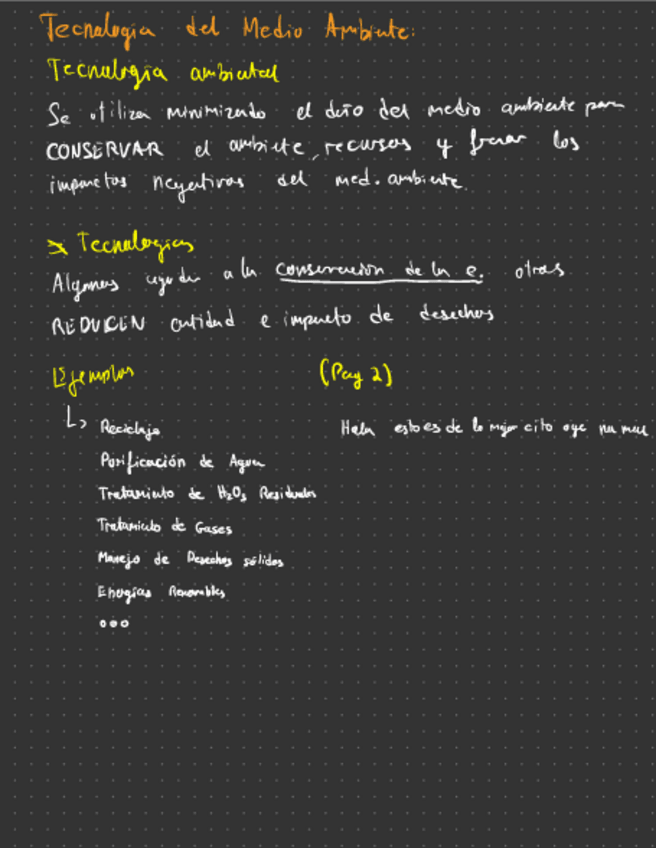 Tecnologia del Medio Ambiente:
Tecnología ambiental
Se utiliza minimizando el daño del medio ambiente para
CONSERVAR el ambiete, recursos y frenar los
impactos negativos del med. ambiente.
Tecnologías
Algunas ayudan a la conservación de la e. otras
REDUCEN cantidad e impacto de desechos
Ejemplos (Pag 2)
↳ Reciclaje
esto es de lo mejor
Purificación de Agua
Tratamiento de H2O, Residuales
Tratamiento de Gases
Manejo de Desechos sólidos
Energías Renovables
ooo